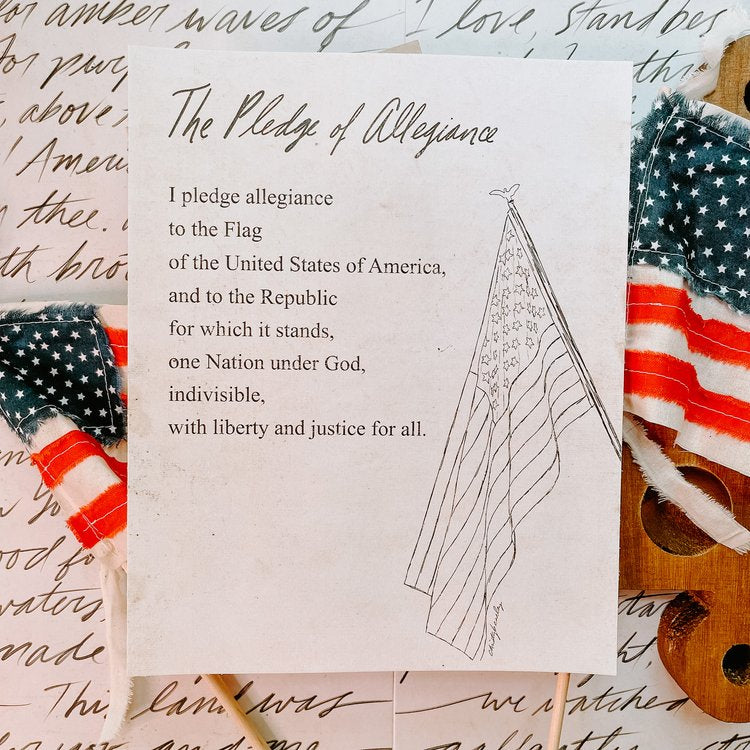 for amber waves of
I love, stand bes
for purp
above
Ameri
thee.
th bro
The Pledge of Allegiance
I pledge allegiance
to the Flag
of the United States of America,
and to the Republic
for which it stands,
one Nation under God,
indivisible,
with liberty and justice for all.
ood fo
waters,
made
This land was
we watched